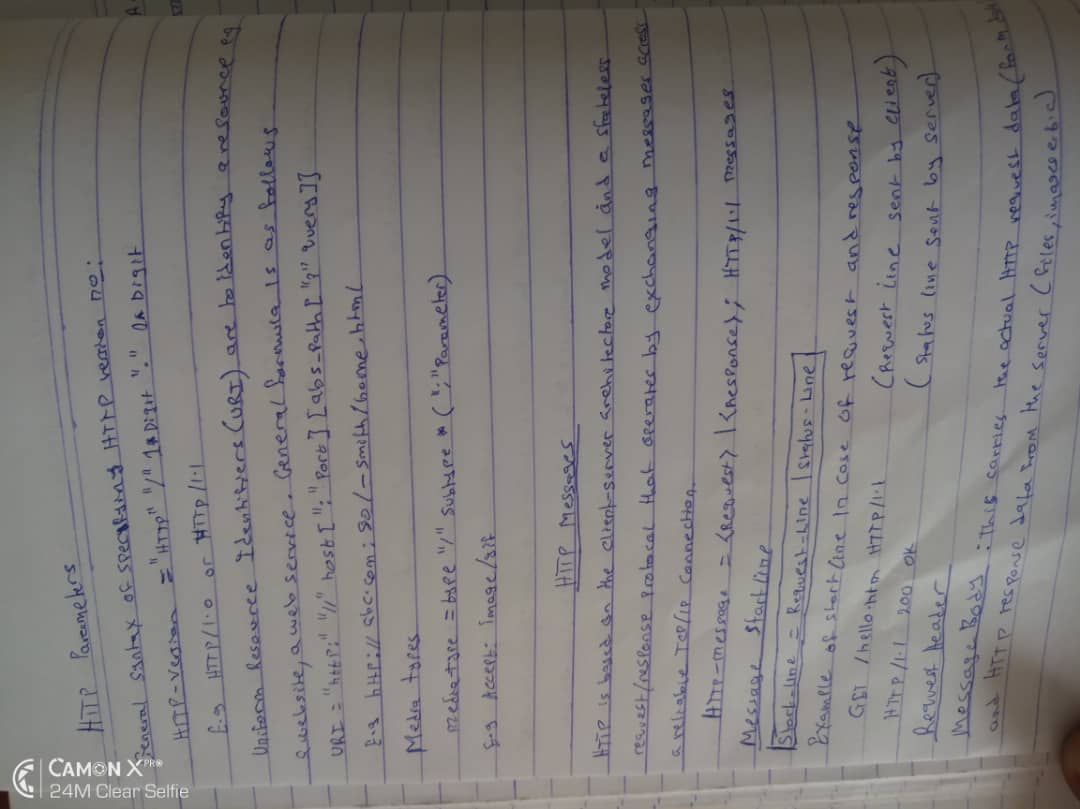 CAMON X PRO
24M Clear Selfie
HTTP Parameters
General Syntax of specifying HTTP version no:
HTTP-Version = "HTTP" "/" 1*Digit "." 1*Digit
E.g HTTP/1.0 or HTTP/1.1
Uniform Resource Identifiers (URI) are to identify a resource eg
a website, a web service. General formula is as follows
URI = "http:" "//" host [":" Port] [abs_path ["?" query]]
E.g http://abc.com:80/-smith/home.html
Media types
media type = type "/" subtype * (";" Parameter)
E.g Accept: image/gif
HTTP Messages
HTTP is based on the client-server architecture model and a stateless
request/response protocal that operates by exchanging messages across
a reliable TCP/IP connection.
HTTP-message = <Request> | <Response>; HTTP/1.1 messages
Message Start line
Start-line = Request-Line | Status-Line
Example of start line in case of request and response
GET /hello.htm HTTP/1.1 (Request line sent by client)
HTTP/1.1 200 OK (status line sent by server)
Request header
Message Body : This carries the actual HTTP request data (form data
and HTTP response data from the server (files, images e.t.c)